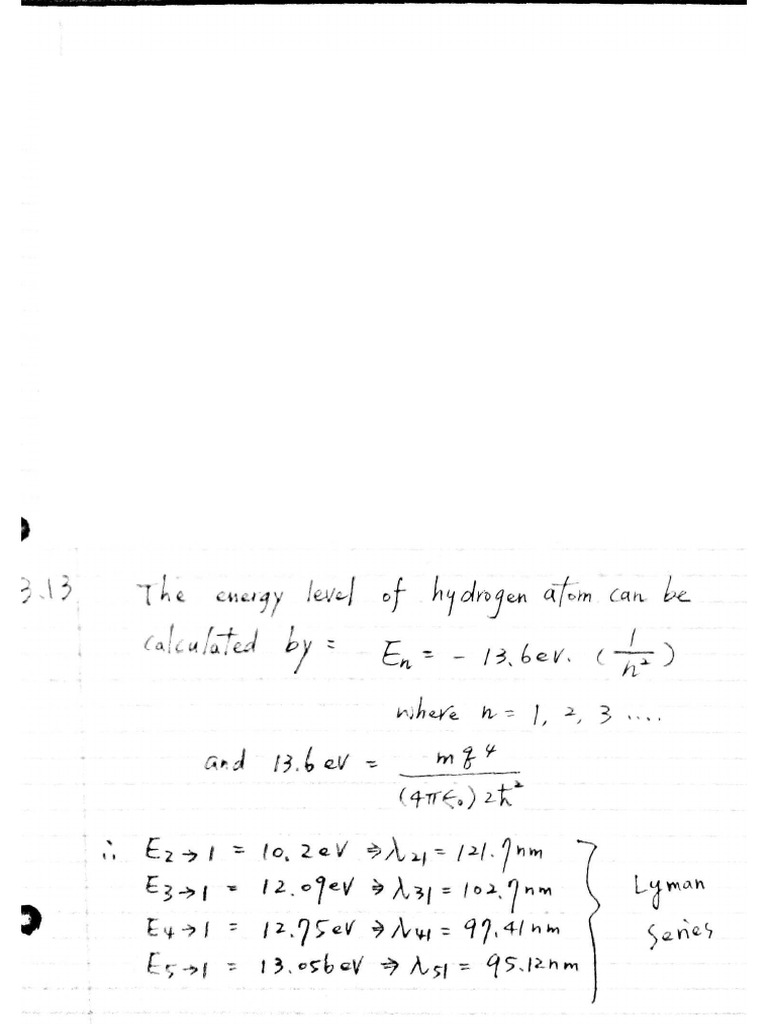 3.13 The energy level of hydrogen atom can be
calculated by = En = - 13.6ev. (1/n²)
where n = 1, 2, 3 ....
and 13.6ev = mq⁴/(4πϵ₀)2ħ²
∴ E2→1 = 10.2eV ⇒ λ21 = 121.7nm
E3→1 = 12.09eV ⇒ λ31 = 102.7nm
E4→1 = 12.75eV ⇒ λ41 = 97.41nm
E5→1 = 13.056eV ⇒ λ51 = 95.12nm
Lyman
Series